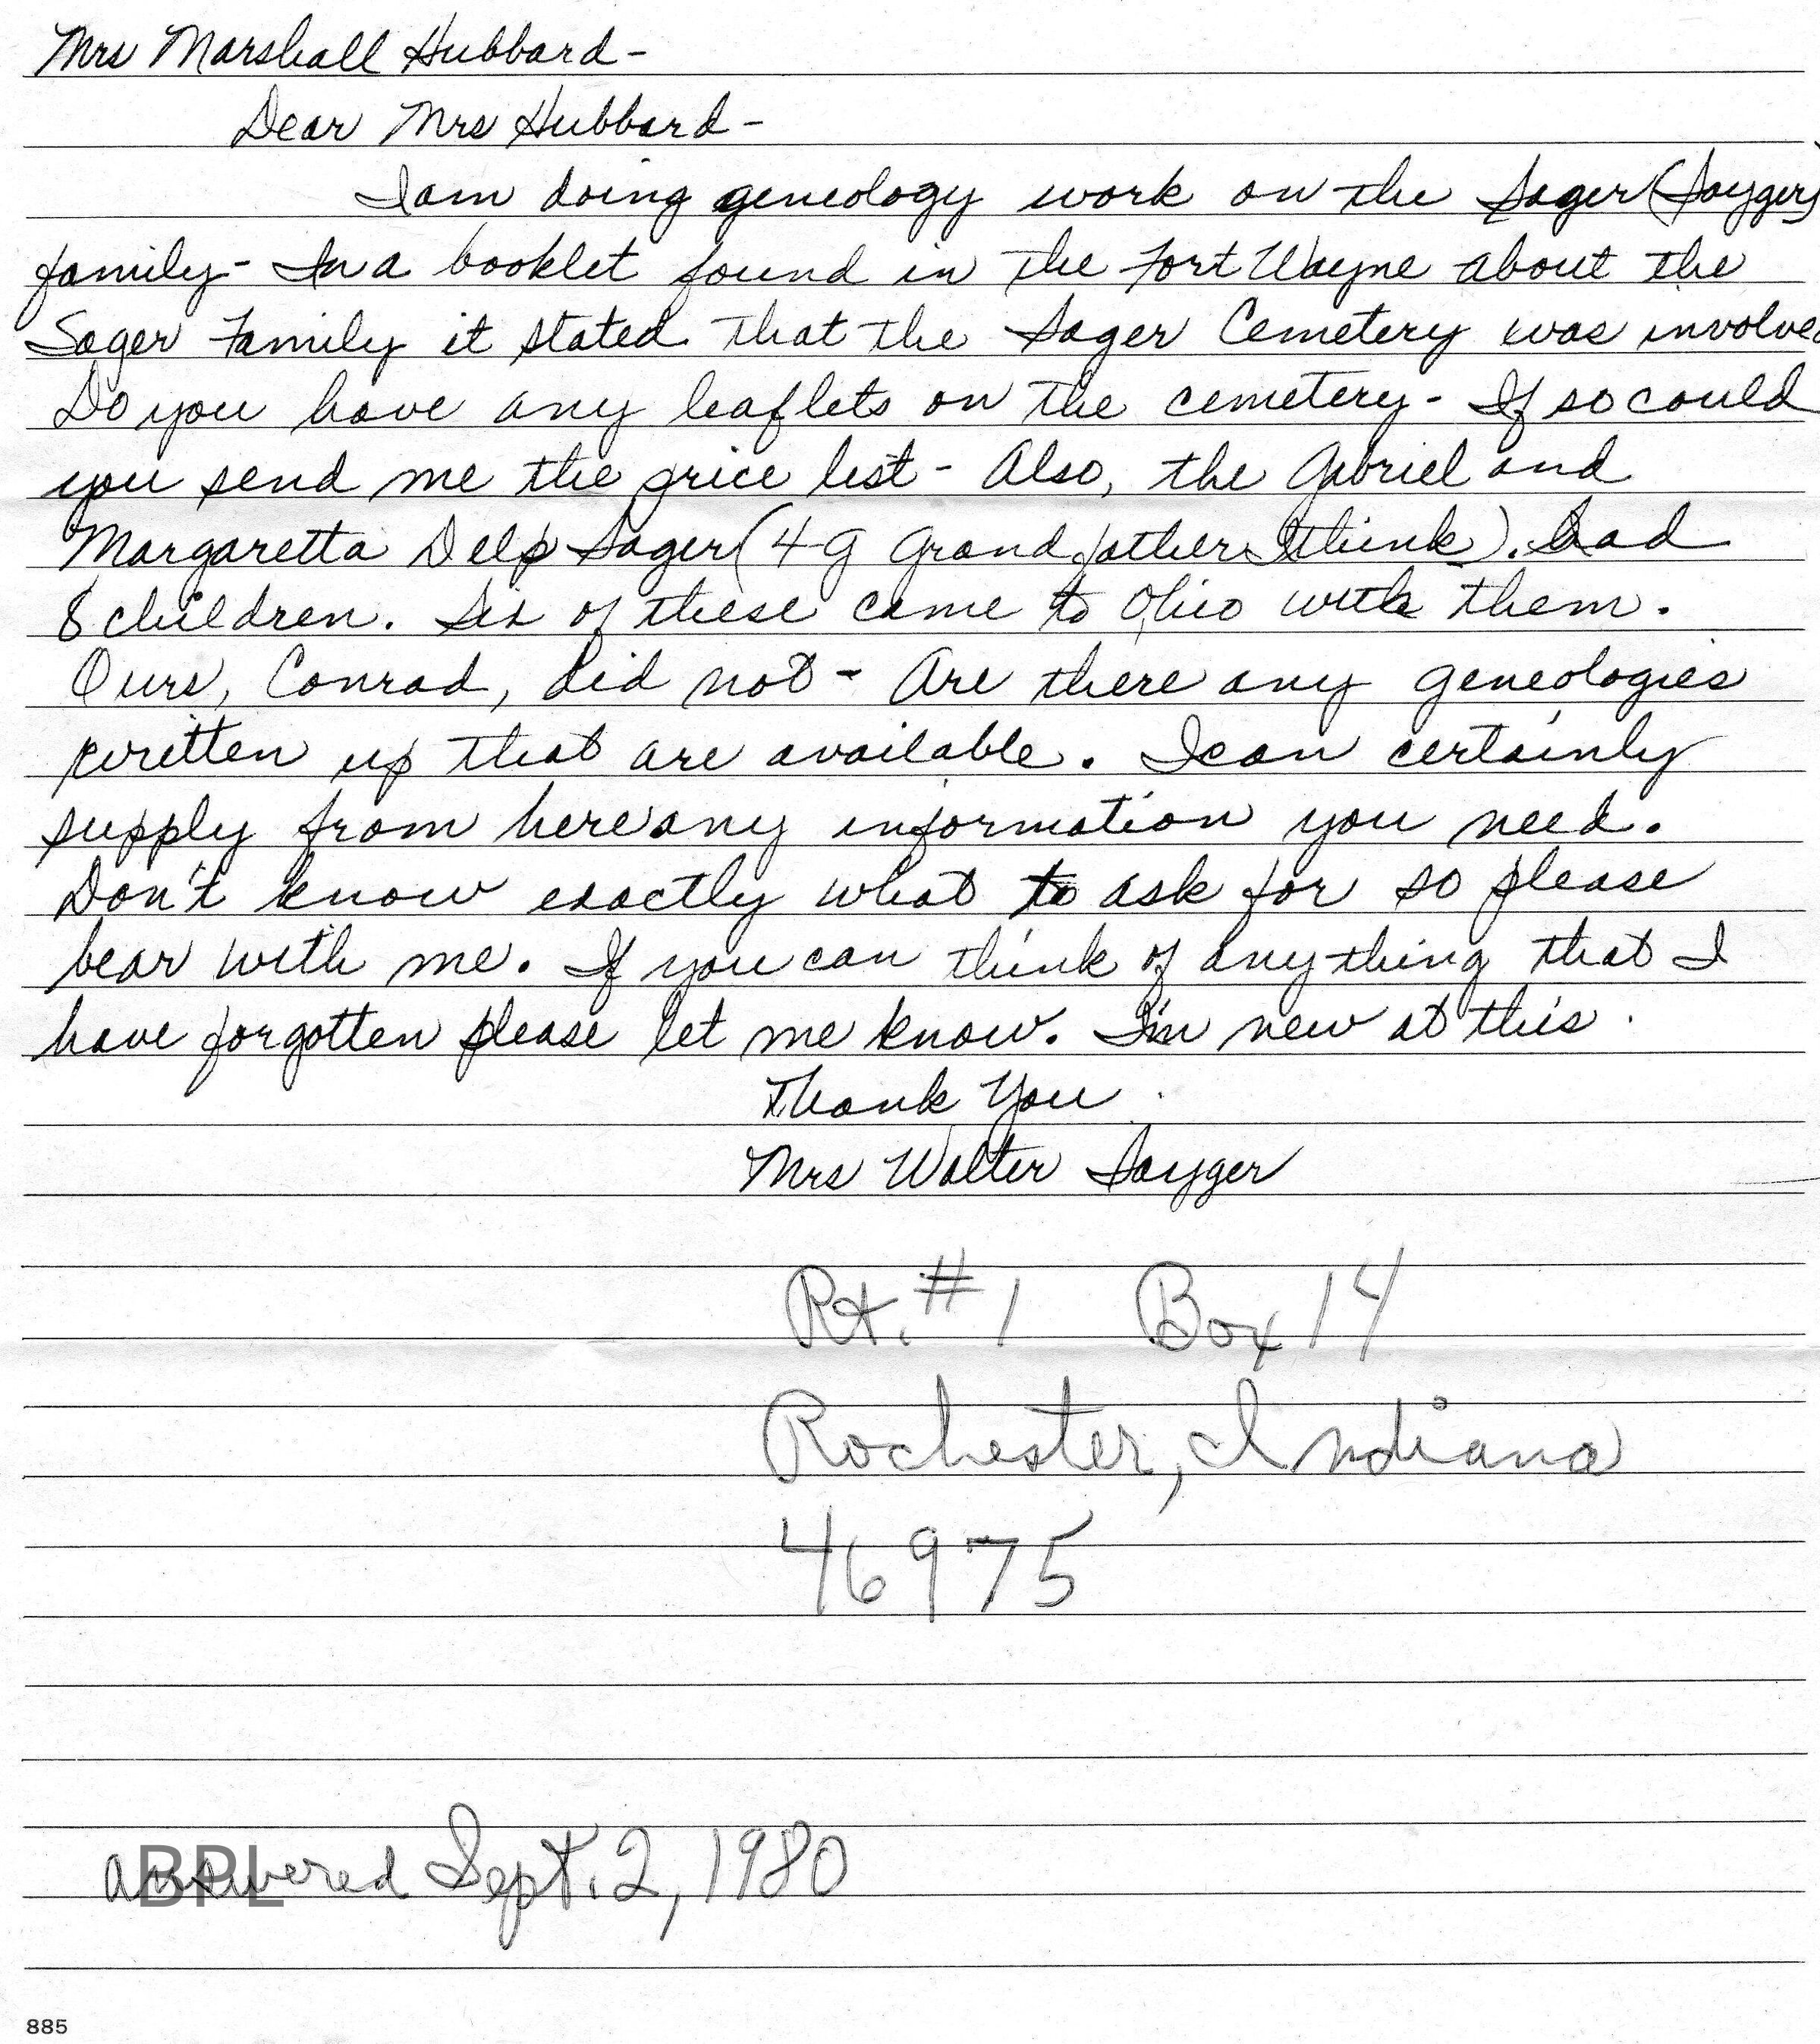 Mrs Marshall Hubbard-
Dear Mrs Hubbard-
I am doing geneology work on the Sager (Sayger)
family - In a booklet found in the Fort Wayne about the
Sager Family it stated that the Sager Cemetery was involved
Do you have any leaflets on the cemetery - If so could
you send me the price list - Also, the Gabriel and
Margaretta Delp Sager (4-G Grandfather I think). had
8 children. Six of these came to Ohio with them.
Ours, Conrad, did not - Are there any geneologies
written up that are available. I can certainly
supply from here any information you need.
Don't know exactly what to ask for so please
bear with me. If you can think of anything that I
have forgotten please let me know. I'm new at this.
Thank You
Mrs Walter Sayger
Rt. #1 Box 14
Rochester, Indiana
46975
answered Sept. 2, 1980
BPL
885